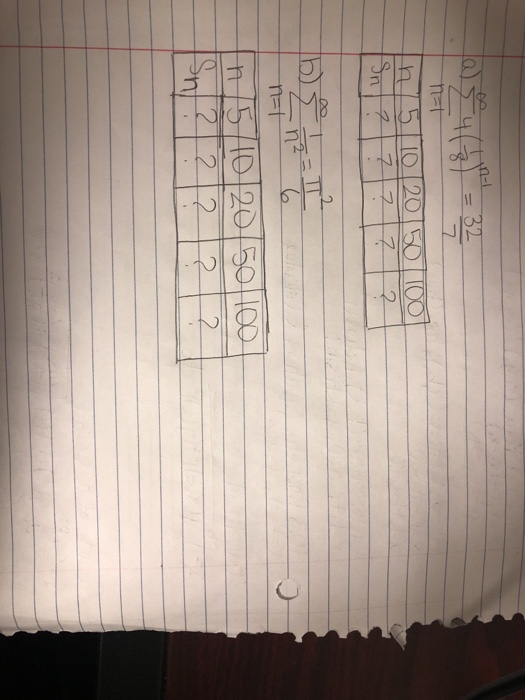 a) ∞∑n=1 4(1/8)^n-1 = 32/7
n 5 10 20 50 100
Sn ? ? ? ? ?
b) ∞∑n=1 1/n² = π²/6
n 5 10 20 50 100
Sn ? ? ? ? ?